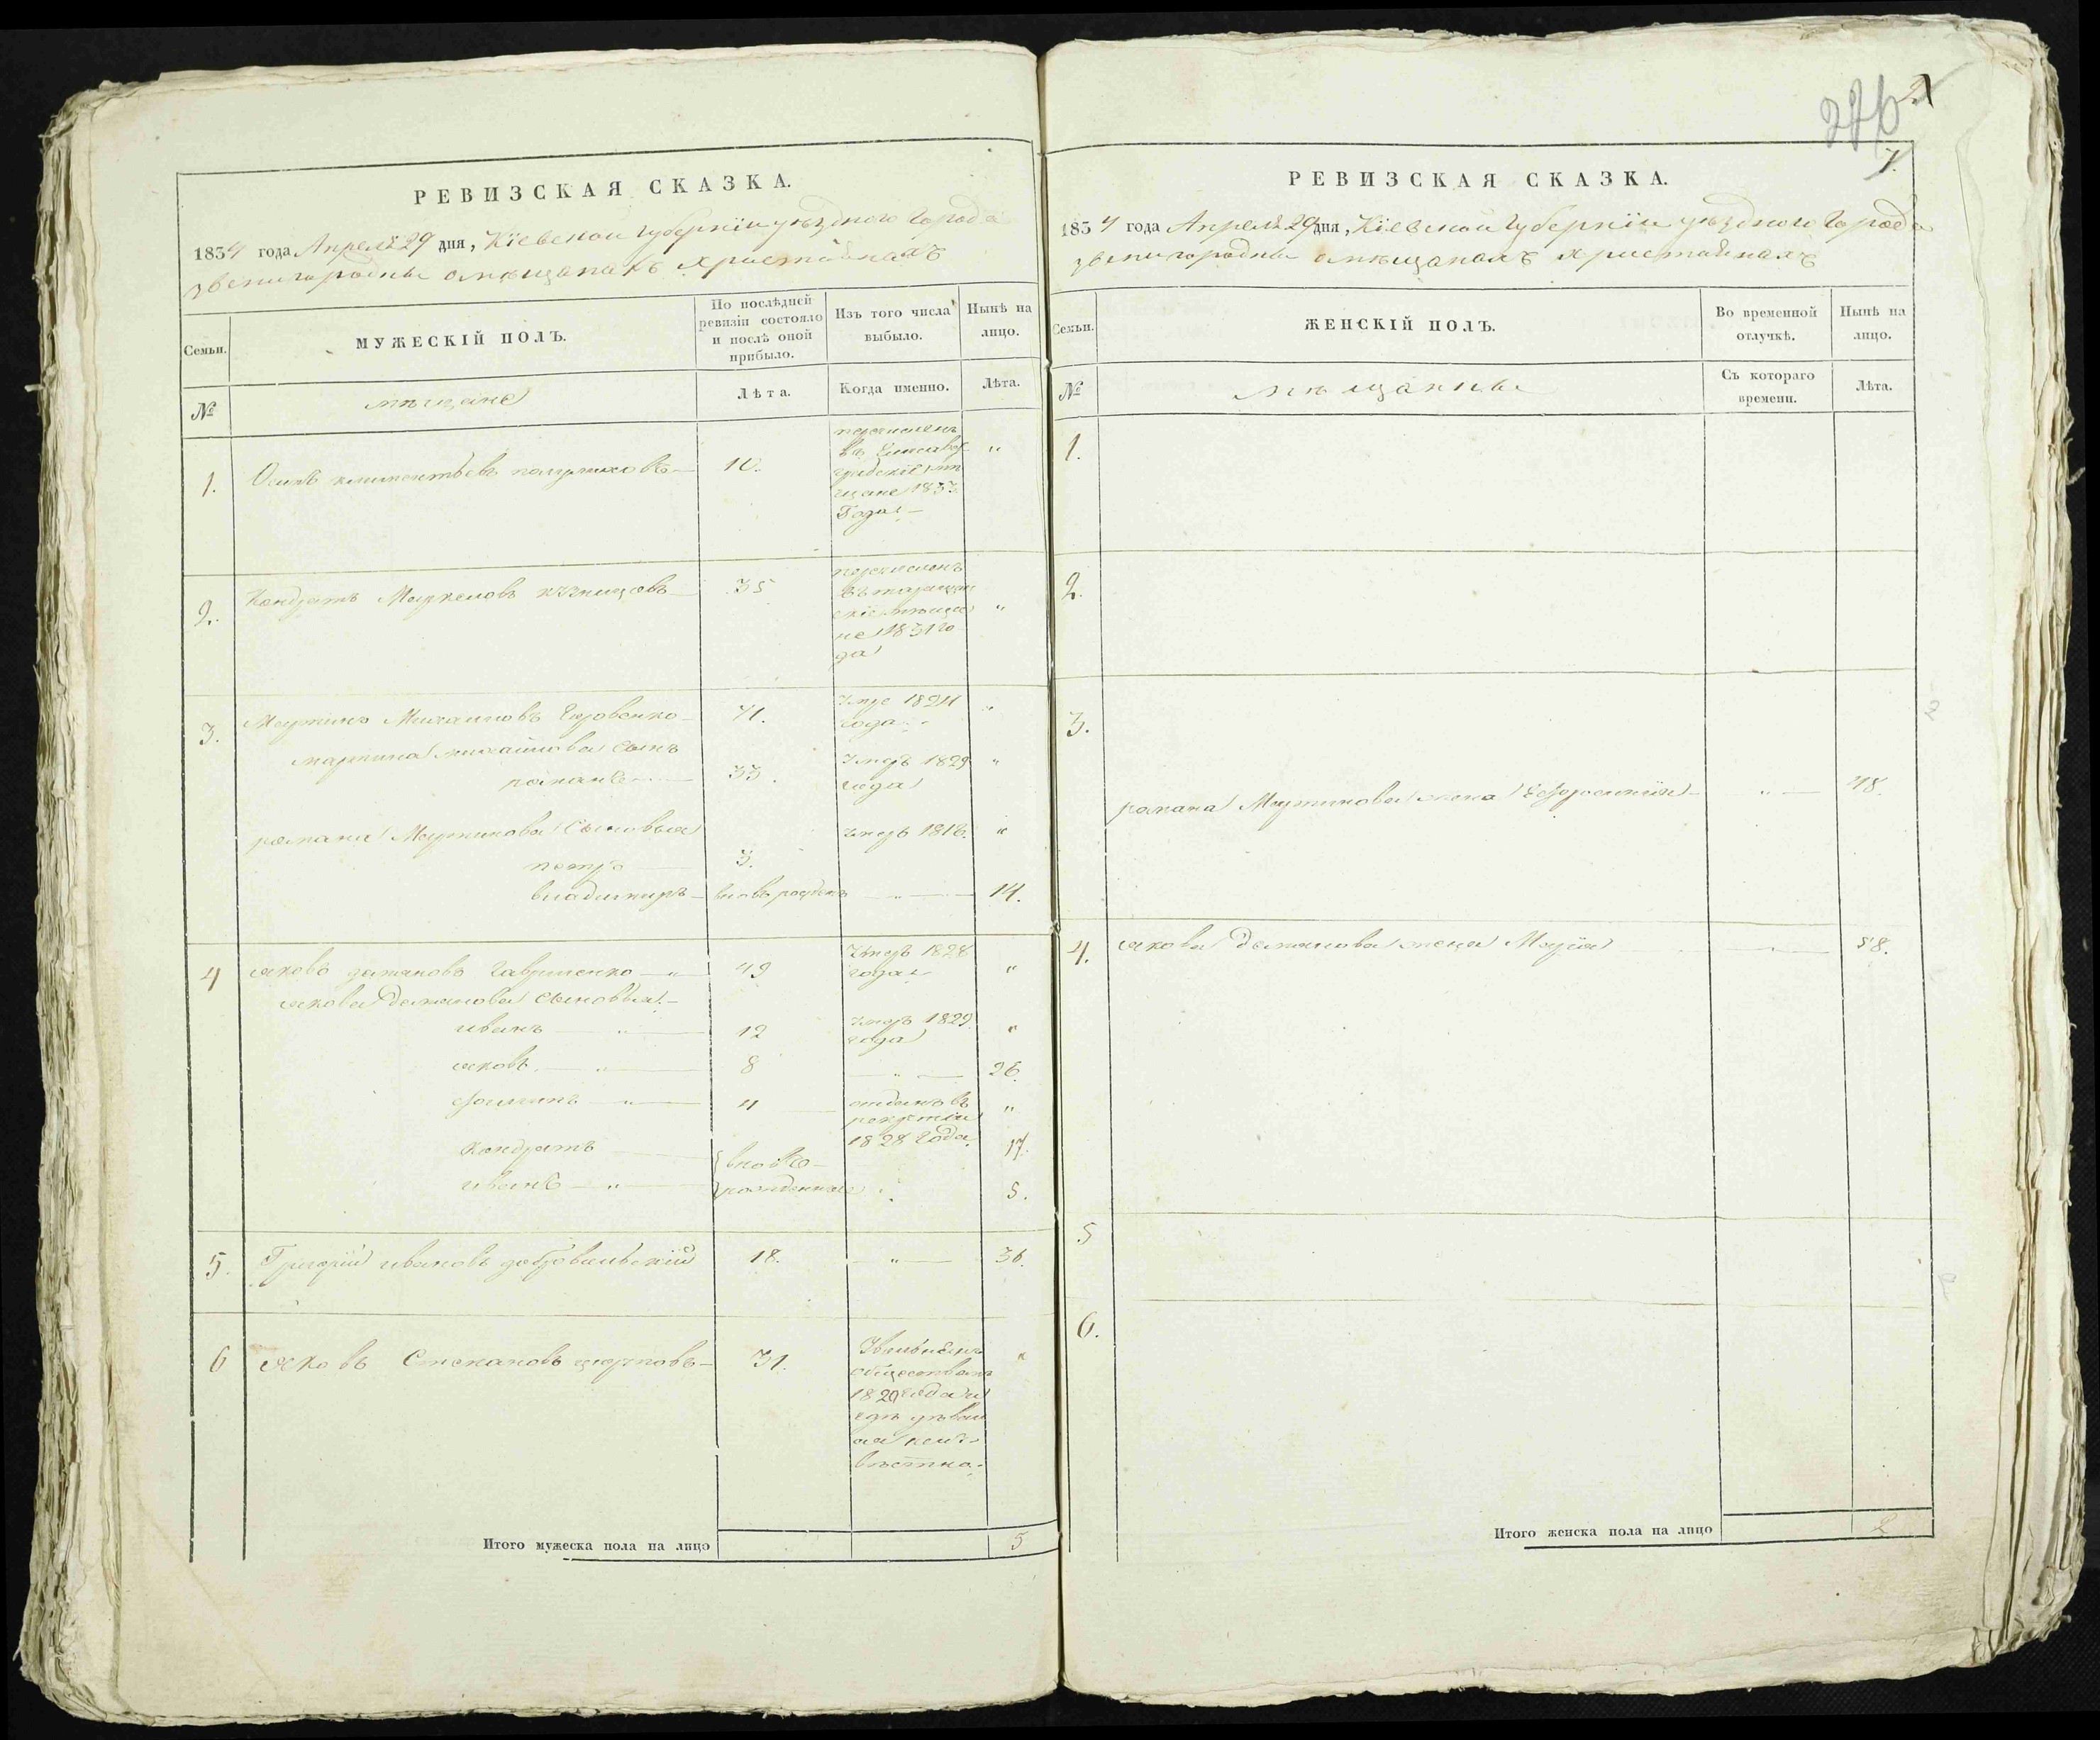 РЕВИЗСКАЯ СКАЗКА.
1834 года Апреля 29 дня, Кіевской Губерніи уѣзднаго Города
звенигородки о мѣщанахъ христіянахъ
Семьи.
МУЖЕСКІЙ ПОЛЪ.
По послѣдней ревизіи состояло и послѣ оной прибыло.
Изъ того числа выбыло.
Нынѣ на лицо.
№
мѣщане
Лѣта.
Когда именно.
Лѣта.
1. Осипъ климентьевъ 10. перечисленъ "
въ Елисавет
градскіе мѣ
щане 1833
Года
2. Кондратъ Маркеловъ 35 перечисленъ "
въ таращан
скіе мѣща
не 1831 го
да
3. Мартинъ Михаиловъ 71. Умре 1824 "
года
мартина михайлова сынъ
романъ 33. Умеръ 1829 "
года
романа Мартинова сыновья умеръ 1818. "
петръ 3.
владимиръ вновь рожденъ " 14.
4 яковъ демяновъ Гавриленко 49 Умеръ 1828 "
года
якова демянова сыновья
иванъ " 12 умеръ 1829 "
года
яковъ " 8 " 26.
" 4 отданъ въ "
рекруты
1828 года
Кондратъ вновь 17.
иванъ " рожденные 5.
5. Григорій ивановъ добровольскій 18. " 36.
6 яковъ Степановъ 31. Уволенъ "
обществомъ
1820 года и
гдѣ
неиз
вѣстно
Итого мужеска пола на лицо 5
21
7.
РЕВИЗСКАЯ СКАЗКА.
1834 года Апреля 29 дня, Кіевской Губерніи уѣзднаго Города
звенигородки о мѣщанахъ христіянахъ
Семьи.
ЖЕНСКІЙ ПОЛЪ.
Во временной отлучкѣ.
Нынѣ на лицо.
№
мѣщанки
Съ котораго времени.
Лѣта.
1.
2.
3.
романа Мартинова жена " 48.
4. якова Демянова жена Марія " 58.
5
6.
Итого женска пола на лицо 2